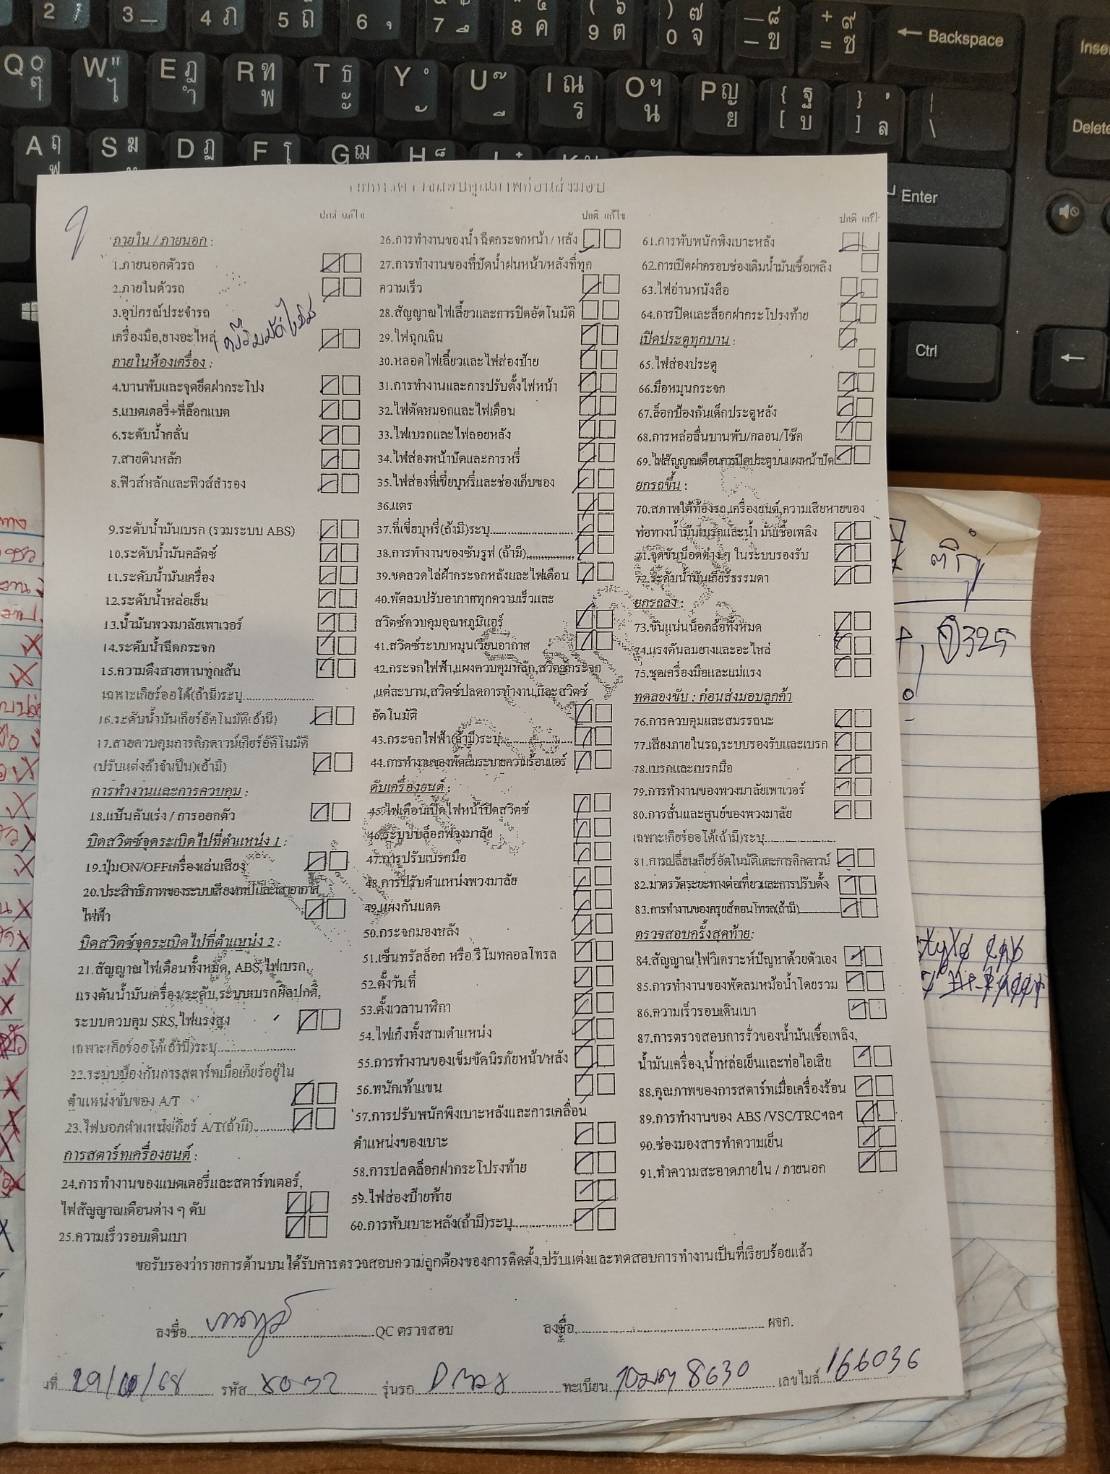 ปกติ แก้ไข
ภายใน / ภายนอก :
1.ภายนอกตัวรถ
2.ภายในตัวรถ
3.อุปกรณ์ประจำรถ
เครื่องมือ,ยางอะไหล่
ภายในห้องเครื่อง :
4.บานพับและจุดยึดฝากระโปง
5.แบตเตอรี่+ที่ล๊อกแบต
6.ระดับน้ำกลั่น
7.สายดินหลัก
8.ฟิวส์หลักและฟิวส์สำรอง
9.ระดับน้ำมันเบรก (รวมระบบ ABS)
10.ระดับน้ำมันคลัตซ์
11.ระดับน้ำมันเครื่อง
12.ระดับน้ำหล่อเย็น
13.น้ำมันพวงมาลัยเพาเวอร์
14.ระดับน้ำฉีดกระจก
15.ความตึงสายพานทุกเส้น
เฉพาะเกียร์ออโต้(ถ้ามี)ระบุ
16.ระดับน้ำมันเกียร์อัตโนมัติ(ถ้ามี)
17.สายควบคุมการคิกดาวน์เกียร์อัตโนมัติ
(ปรับแต่งถ้าจำเป็น)(ถ้ามี)
การทำงานและการควบคุม :
18.แป้นคันเร่ง / การออกตัว
บิดสวิตซ์จุดระเบิดไปที่ตำแหน่ง 1 :
19.ปุ่มON/OFFเครื่องเล่นเสียง
20.ประสิทธิภาพของระบบเสียงเทปและเสาอากาศ
ไฟฟ้า
บิดสวิตซ์จุดระเบิดไปที่ตำแหน่ง 2 :
21.สัญญาณไฟเตือนทั้งหมด, ABS,ไฟเบรก,
แรงดันน้ำมันเครื่อง/ระดับ,ระบบเบรกผิดปกติ,
ระบบควบคุม SRS,ไฟแรงสูง
เฉพาะเกียร์ออโต้(ถ้ามี)ระบุ
22.ระบบป้องกันการสตาร์ทเมื่อเกียร์อยู่ใน
ตำแหน่งขับของ A/T
23.ไฟบอกตำแหน่งเกียร์ A/T(ถ้ามี)
การสตาร์ทเครื่องยนต์ :
24.การทำงานของแบตเตอรี่และสตาร์ทเตอร์,
ไฟสัญญาณเตือนต่าง ๆ ดับ
25.ความเร็วรอบเดินเบา
ปกติ แก้ไข
26.การทำงานของน้ำ ฉีดกระจกหน้า / หลัง
27.การทำงานของที่ปัดน้ำฝนหน้า/หลังที่ทุก
ความเร็ว
28.สัญญาณไฟเลี้ยวและการปิดอัตโนมัติ
29.ไฟฉุกเฉิน
30.หลอดไฟเลี้ยวและไฟส่องป้าย
31.การทำงานและการปรับตั้งไฟหน้า
32.ไฟตัดหมอกและไฟเตือน
33.ไฟเบรกและไฟถอยหลัง
34.ไฟส่องหน้าปัดและการหรี่
35.ไฟส่องที่เขี่ยบุหรี่และช่องเก็บของ
36.แตร
37.ที่เขี่ยบุหรี่(ถ้ามี)ระบุ
38.การทำงานของซันรูฟ (ถ้ามี)
39.ขดลวดไล่ฝ้ากระจกหลังและไฟเตือน
40.พัดลมปรับอากาศทุกความเร็วและ
สวิตซ์ควบคุมอุณหภูมิแอร์
41.สวิตซ์ระบบหมุนเวียนอากาศ
42.กระจกไฟฟ้า,แผงควบคุมหลัก,สวิตซ์กระจก
แต่ละบาน,สวิตซ์ปลดการทำงาน,และสวิตซ์
อัตโนมัติ
43.กระจกไฟฟ้า(ถ้ามี)ระบุ
44.การทำงานของพัดลมระบายความร้อนแอร์
ดับเครื่องยนต์ :
45.ไฟเตือนเปิดไฟหน้าปิดสวิตซ์
46.ระบบบล็อกพวงมาลัย
47.การปรับเบรกมือ
48.การปรับตำแหน่งพวงมาลัย
49.แผงกันแดด
50.กระจกมองหลัง
51.เซ็นทรัลล็อก หรือ รีโมทคอลโทรล
52.ตั้งวันที่
53.ตั้งเวลานาฬิกา
54.ไฟเก๋งทั้งสามตำแหน่ง
55.การทำงานของเข็มขัดนิรภัยหน้า/หลัง
56.พนักเท้าแขน
57.การปรับพนักพิงเบาะหลังและการเคลื่อน
ตำแหน่งของเบาะ
58.การปลดล็อกฝากระโปรงท้าย
59.ไฟส่องป้ายท้าย
60.การพับเบาะหลัง(ถ้ามี)ระบุ
ปกติ แก้ไ
61.การพับพนักพิงเบาะหลัง
62.การเปิดฝาครอบช่องเติมน้ำมันเชื้อเพลิง
63.ไฟอ่านหนังสือ
64.การปิดและล็อกฝากระโปรงท้าย
เปิดประตูทุกบาน :
65.ไฟส่องประตู
66.มือหมุนกระจก
67.ล็อกป้องกันเด็กประตูหลัง
68.การหล่อลื่นบานพับ/กลอน/โช๊ค
69.ไฟสัญญาณเตือนการเปิดประตูบนแผงหน้าปัด
ยกรถขึ้น :
70.สภาพใต้ท้องรถ,เครื่องยนต์,ความเสียหายของ
ท่อทางน้ำมันเบรกและน้ำ มันเชื้อเพลิง
71.จุดขันน็อตต่าง ๆ ในระบบรองรับ
72.ระดับน้ำมันเกียร์ธรรมดา
ยกรถลง :
73.ขันแน่นน็อตล้อทั้งหมด
74.แรงดันลมยางและอะไหล่
75.ชุดเครื่องมือและแม่แรง
ทดลองขับ : ก่อนส่งมอบลูกค้า
76.การควบคุมและสมรรถนะ
77.เสียงภายในรถ,ระบบรองรับและเบรก
78.เบรกและเบรกมือ
79.การทำงานของพวงมาลัยเพาเวอร์
80.การสั่นและศูนย์ของพวงมาลัย
เฉพาะเกียร์ออโต้(ถ้ามี)ระบุ
81.การเปลี่ยนเกียร์อัตโนมัติและการคิกดาวน์
82.มาตรวัดระยะทางต่อเที่ยวและการปรับตั้ง
83.การทำงานของครุยส์คอนโทรล(ถ้ามี)
ตรวจสอบครั้งสุดท้าย:
84.สัญญาณไฟวิเคราะห์ปัญหาด้วยตัวเอง
85.การทำงานของพัดลมหม้อน้ำโดยรวม
86.ความเร็วรอบเดินเบา
87.การตรวจสอบการรั่วของน้ำมันเชื้อเพลิง,
น้ำมันเครื่อง,น้ำหล่อเย็นและท่อไอเสีย
88.คุณภาพของการสตาร์ทเมื่อเครื่องร้อน
89.การทำงานของ ABS /VSC/TRCฯลฯ
90.ช่องมองสารทำความเย็น
91.ทำความสะอาดภายใน / ภายนอก
ขอรับรองว่ารายการด้านบนได้รับการตรวจสอบความถูกต้องของการติดตั้ง,ปรับแต่งและทดสอบการทำงานเป็นที่เรียบร้อยแล้ว
ลงชื่อ QC ตรวจสอบ ลงชื่อ ผจก.
รหัส 80-32 รุ่นรถ D max ทะเบียน 8630 เลขไมล์ 166036
Backspace
Enter
Ctrl
Delete